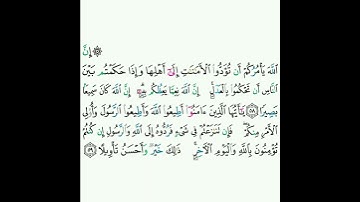 ۞ إِنَّ
ٱللَّهَ يَأْمُرُكُمْ أَن تُؤَدُّوا۟ ٱلْأَمَـٰنَـٰتِ إِلَىٰٓ أَهْلِهَا وَإِذَا حَكَمْتُم بَيْنَ
ٱلنَّاسِ أَن تَحْكُمُوا۟ بِٱلْعَدْلِ ۚ إِنَّ ٱللَّهَ نِعِمَّا يَعِظُكُم بِهِۦٓ ۗ إِنَّ ٱللَّهَ كَانَ سَمِيعًۢا
بَصِيرًا ﴿٥٨﴾ يَـٰٓأَيُّهَا ٱلَّذِينَ ءَامَنُوٓا۟ أَطِيعُوا۟ ٱللَّهَ وَأَطِيعُوا۟ ٱلرَّسُولَ وَأُو۟لِى
ٱلْأَمْرِ مِنكُمْ ۖ فَإِن تَنَـٰزَعْتُمْ فِى شَىْءٍ فَرُدُّوهُ إِلَى ٱللَّهِ وَٱلرَّسُولِ إِن كُنتُمْ
تُؤْمِنُونَ بِٱللَّهِ وَٱلْيَوْمِ ٱلْـَٔاخِرِ ۚ ذَٰلِكَ خَيْرٌ وَأَحْسَنُ تَأْوِيلًا ﴿٥٩﴾